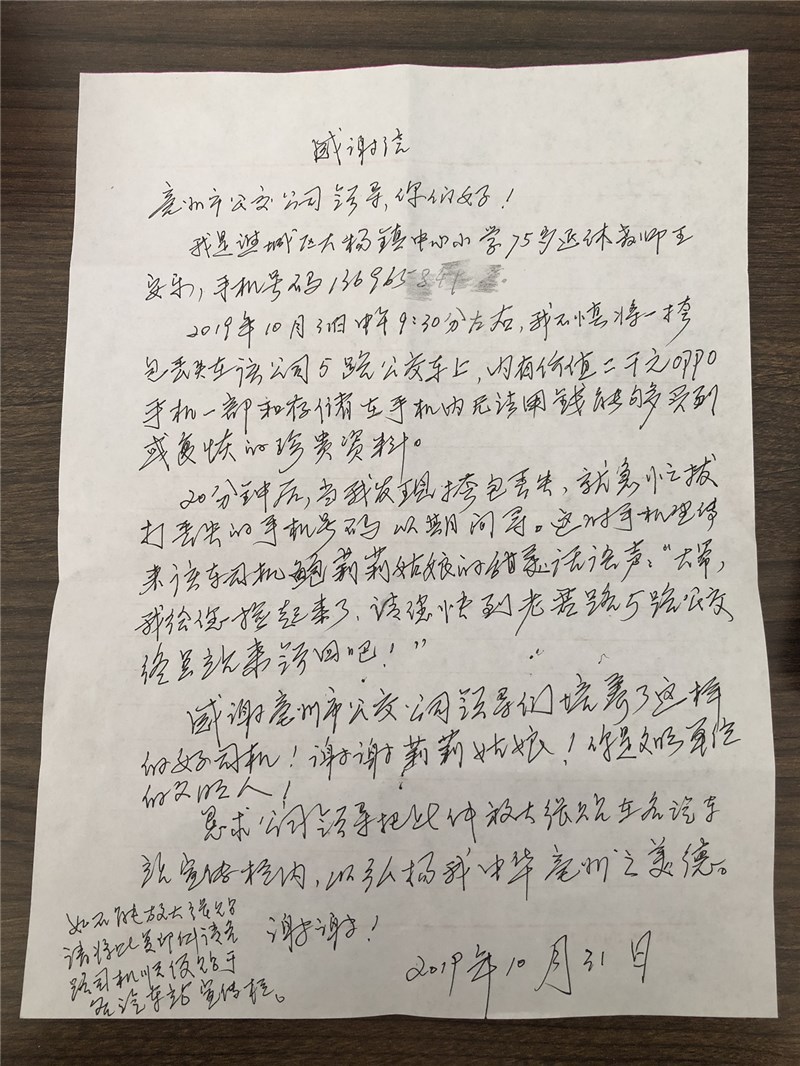 感谢信
亳州市公交公司领导,你们好!
我是谯城区大杨镇中心小学75岁退休教师王
安乐,手机号码136965
2019年10月31日中午9:30分左右,我不慎将一挎
包丢失在该公司5路公交车上,内有价值二千元OPPO
手机一部和存储在手机内无法用钱能够买到
或复恢的珍贵资料。
20分钟后,当我发现挎包丢失,就急忙拨
打丢失的手机号码以期问寻。这时手机里传
来该车司机鲍莉莉姑娘的甜美话语声:“大爷,
我给您捡起来了,请您快到光荟路5路公交
终点站来领回吧!”
感谢亳州市公交公司领导们培养了这样
的好司机!谢谢莉莉姑娘!你是文明单位
的文明人!
恳求公司领导把此件放大张贴在各汽车
站宣传栏内,以弘杨我中华亳州之美德。
谢谢!
2019年10月31日
如不能放大张贴
请将此复印例请各
路司机顺便贴于
各汽车站宣传栏。